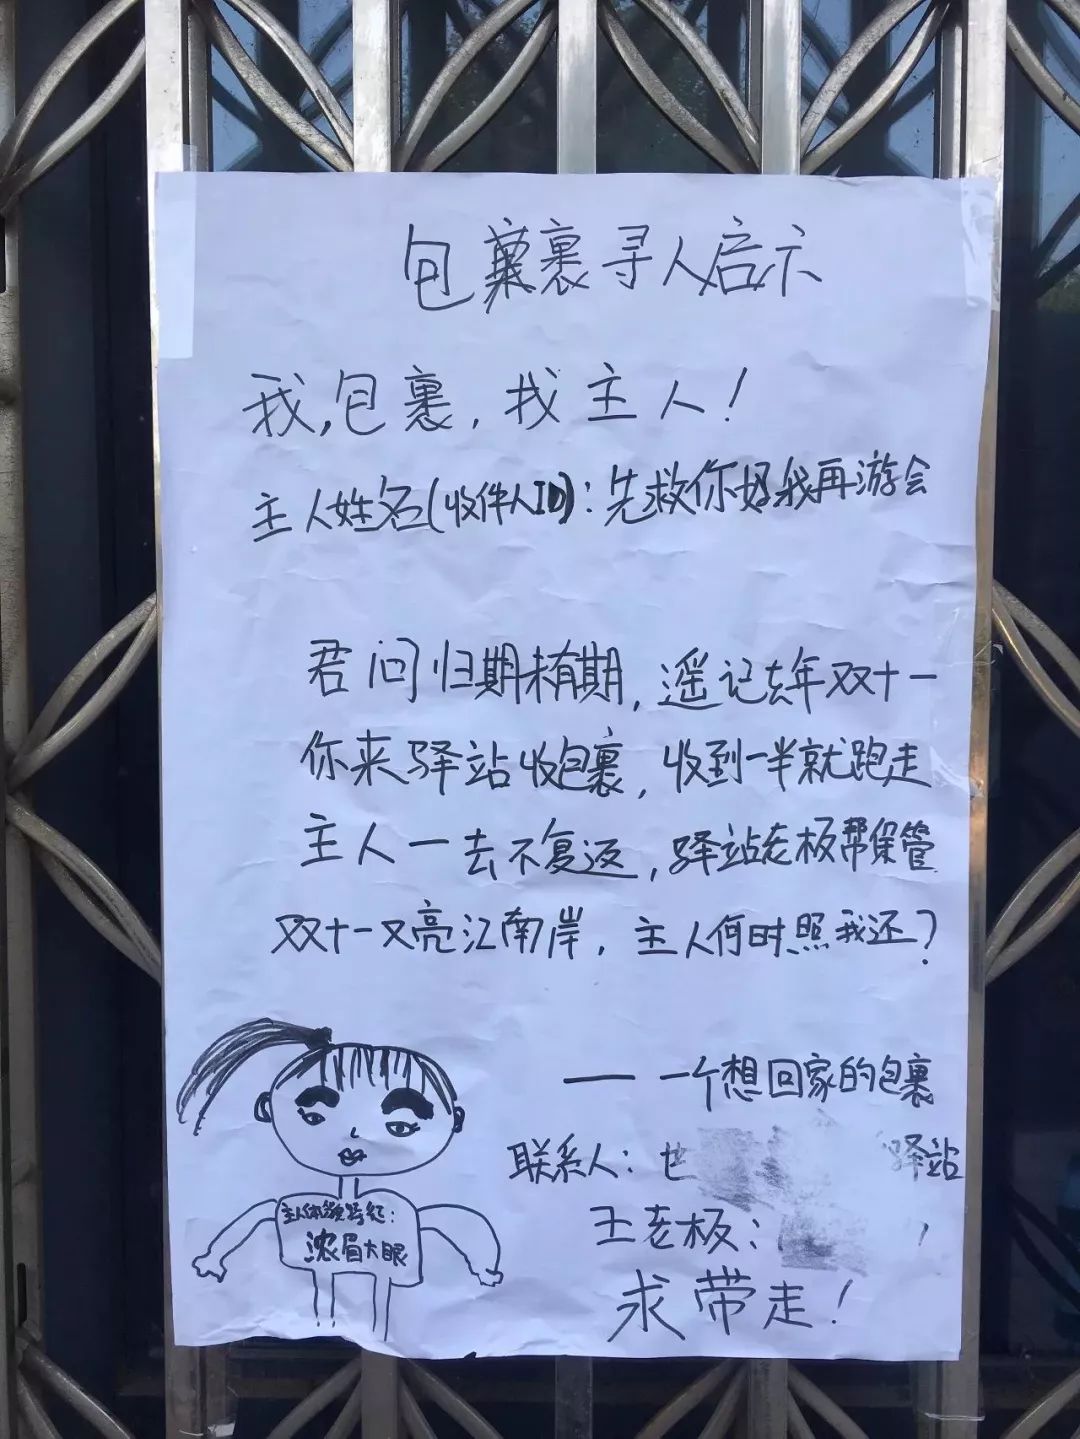 包裹裹寻人启示
我,包裹,找主人!
主人姓名(收件人ID):先救你妈我再游会
君问归期未有期,遥记去年双十一
你来驿站收包裹,收到一半就跑走
主人一去不复返,驿站老板帮保管
双十一又亮江南岸,主人何时照我还?
——一个想回家的包裹
联系人: 驿站
王老板:
求带走!
主人体貌特征:
浓眉大眼